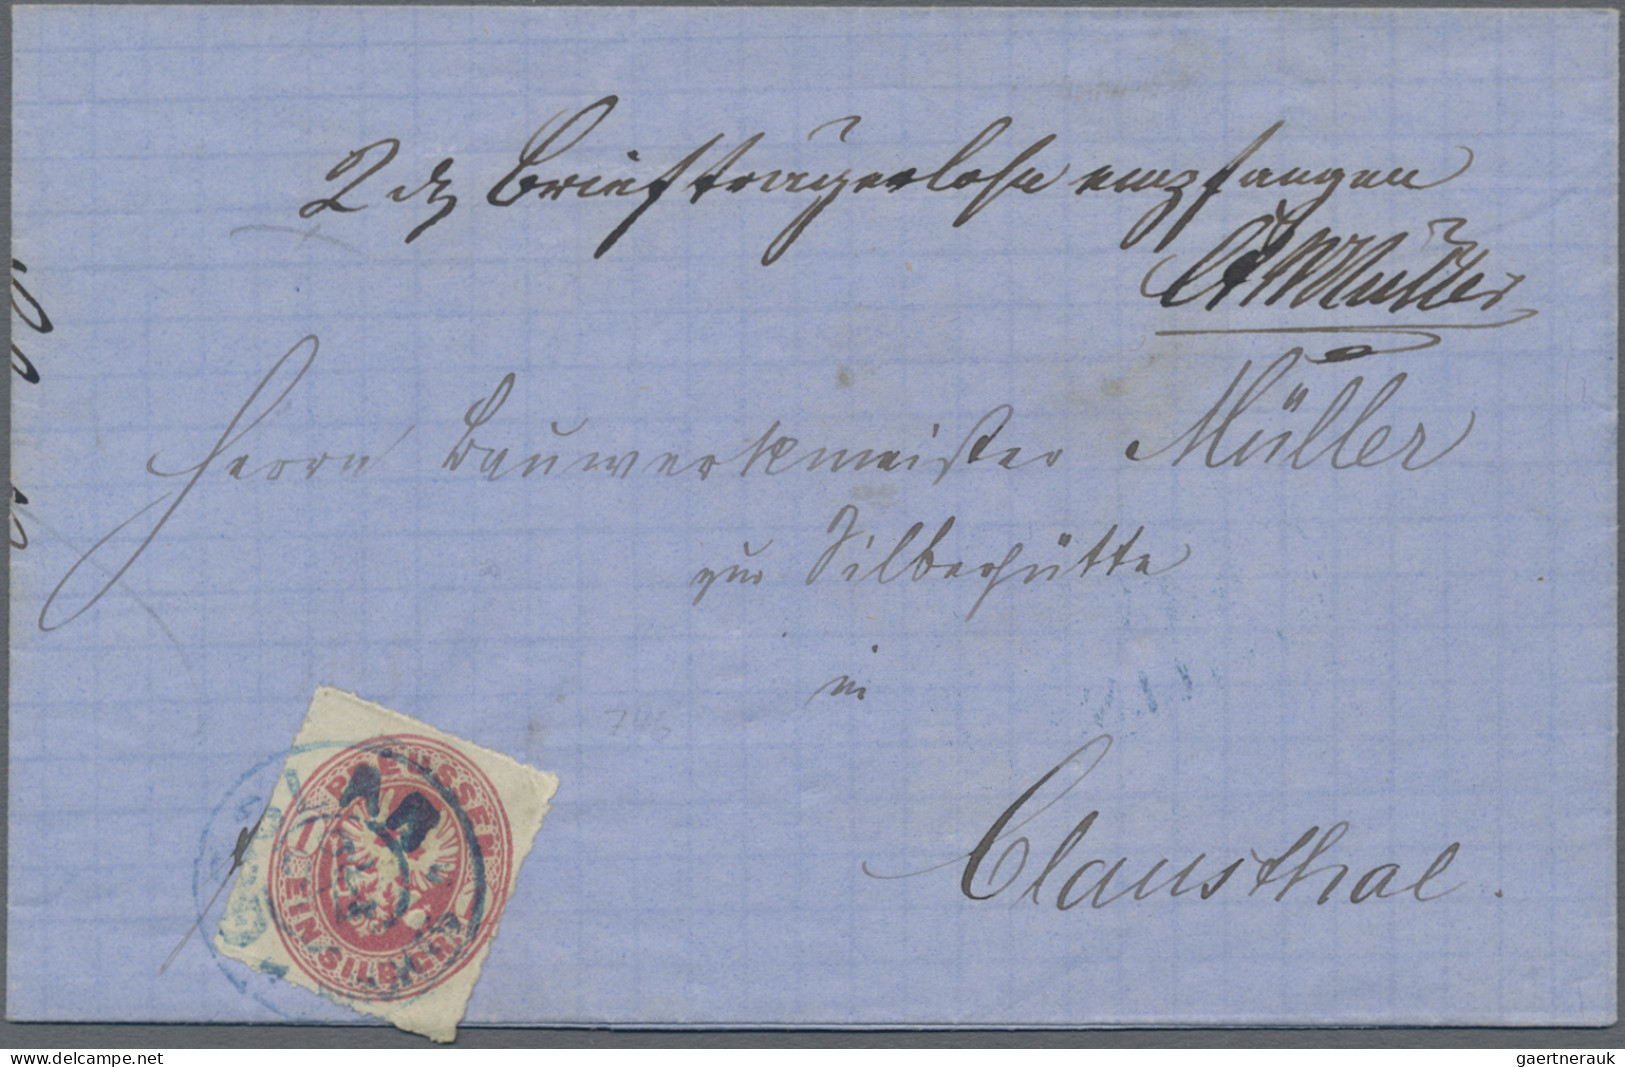 2 ₰ Briefträgerlohn empfangen
Müller
Herrn Bauwerkmeister Müller
zur Silberhütte
in
Clausthal.
PREUSSEN
1 EIN SILBERGR. 1
www.delcampe.net
gaertnerauk